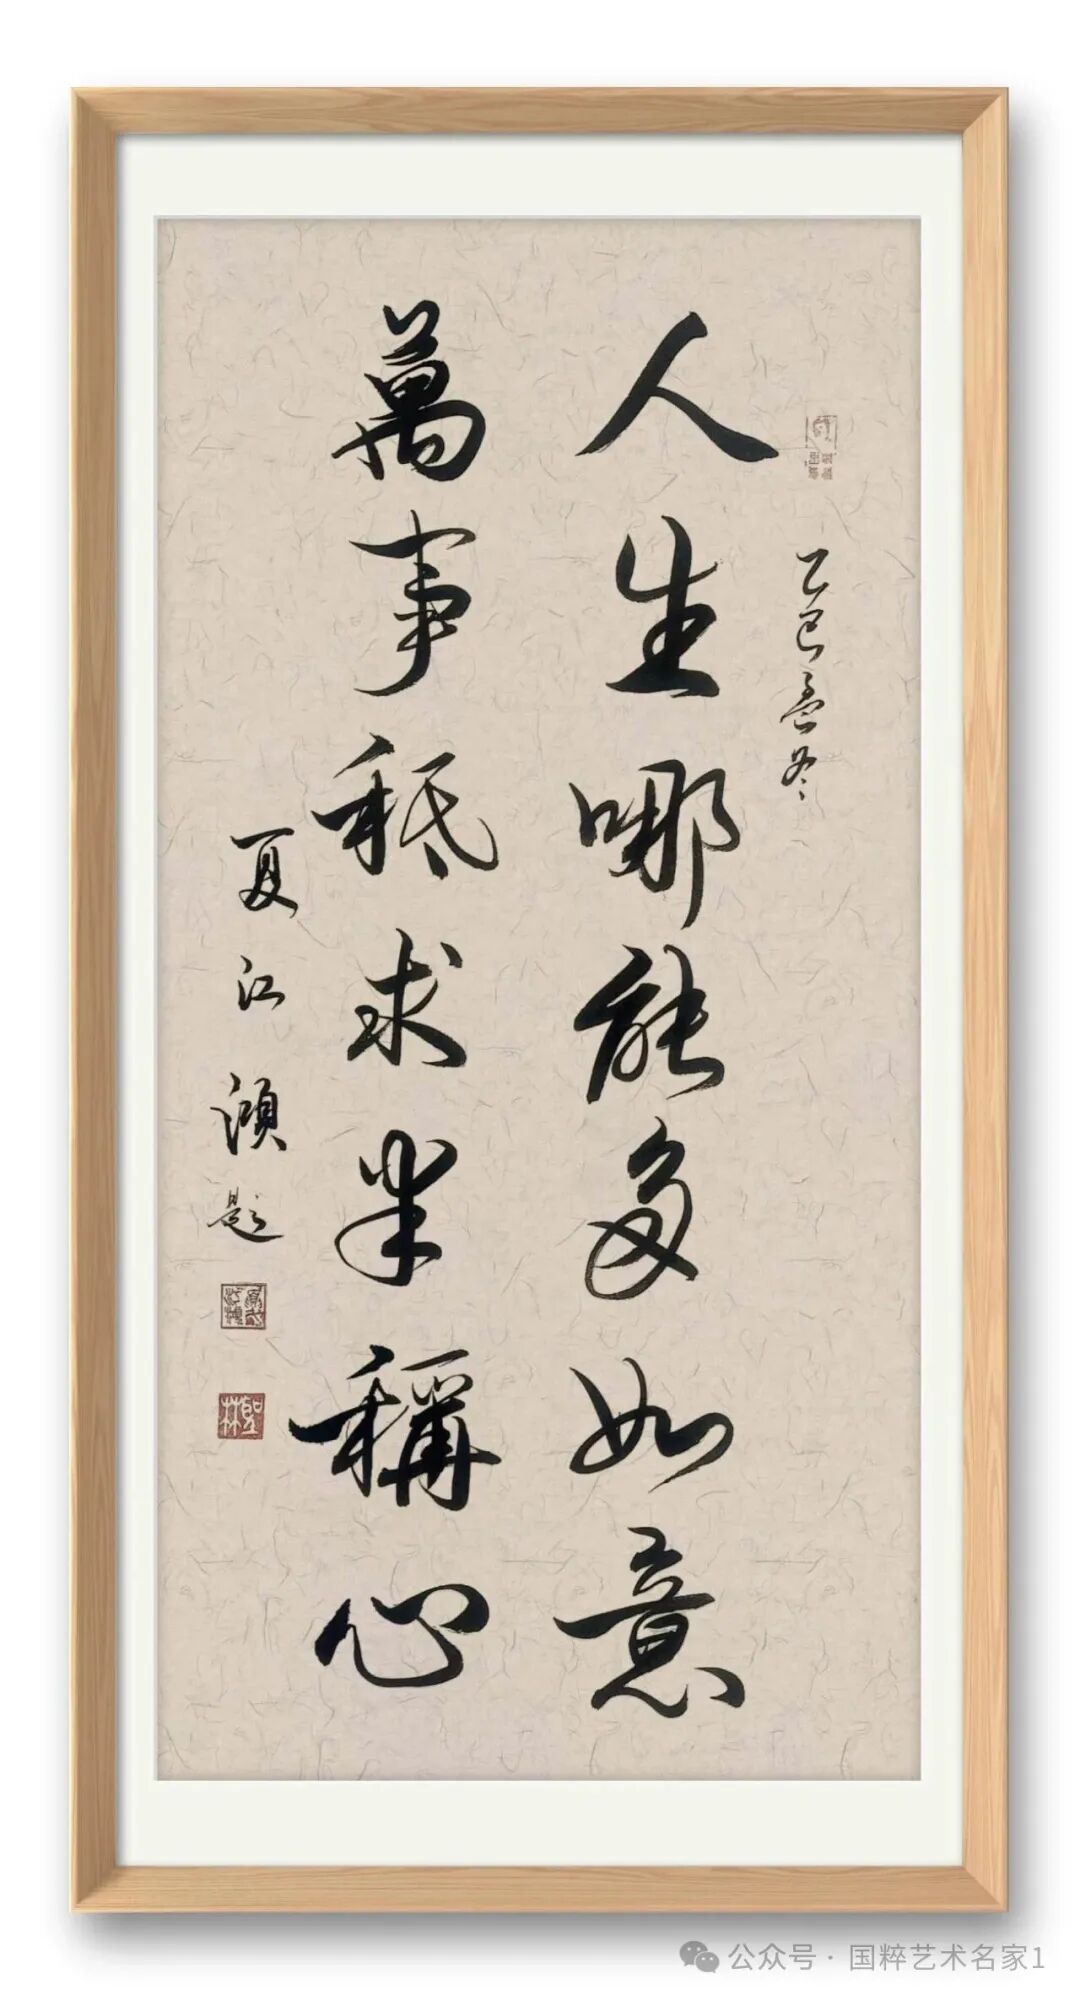 乙巳孟冬
人生哪能多如意
萬事秪求半稱心
夏江湏題
聖林
公众号 · 国粹艺术名家1